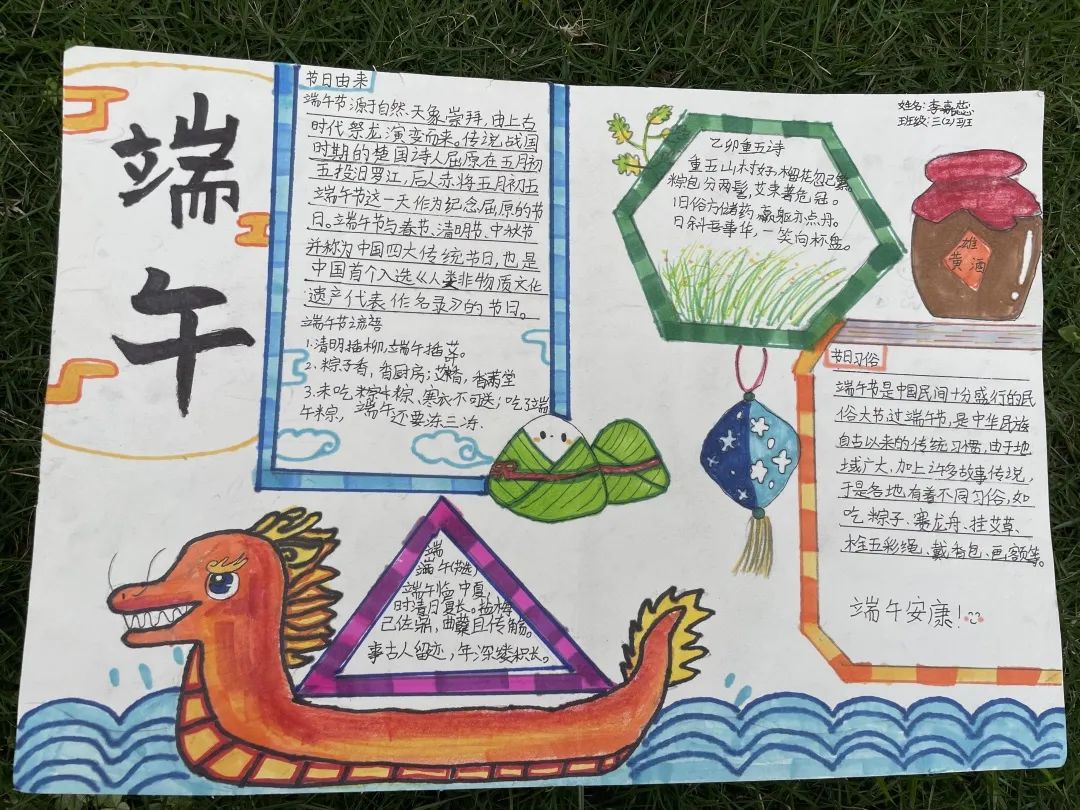 端
午
节日由来
端午节源于自然天象崇拜,由上古
时代祭龙演变而来。传说战国
时期的楚国诗人屈原在五月初
五投汨罗江,后人亦将五月初五
端午节这一天作为纪念屈原的节
日。端午节与春节、清明节、中秋节
并称为中国四大传统节日,也是
中国首个入选《人类非物质文化
遗产代表作名录》的节日。
端午节谚语
1.清明插柳,端午插艾。
2.粽子香,香厨房;艾叶香,香满堂
3.未吃粽粽,寒衣不可送;吃了端
午粽,端午还要冻三冻.
乙卯重五诗
重五山村好,榴花忽已繁。
粽包分两髻,艾束著危冠。
旧俗方储药,羸躯亦点丹。
日斜吾事毕,一笑向杯盘。
姓名:李嘉蕊
班级:三(2)班
雄
黄酒
节日习俗
端午节是中国民间十分盛行的民
俗大节过端午节,是中华民族
自古以来的传统习惯,由于地
域广大,加上许多故事传说,
于是各地有着不同习俗,如
吃粽子、赛龙舟、挂艾草、
栓五彩绳、戴香包、画额等。
端午安康!
端
端午(节选)
端午临中夏,
时清日复长。盐梅
己佐鼎,曲糵且传觞。
事古人留迹,年深缕积长。